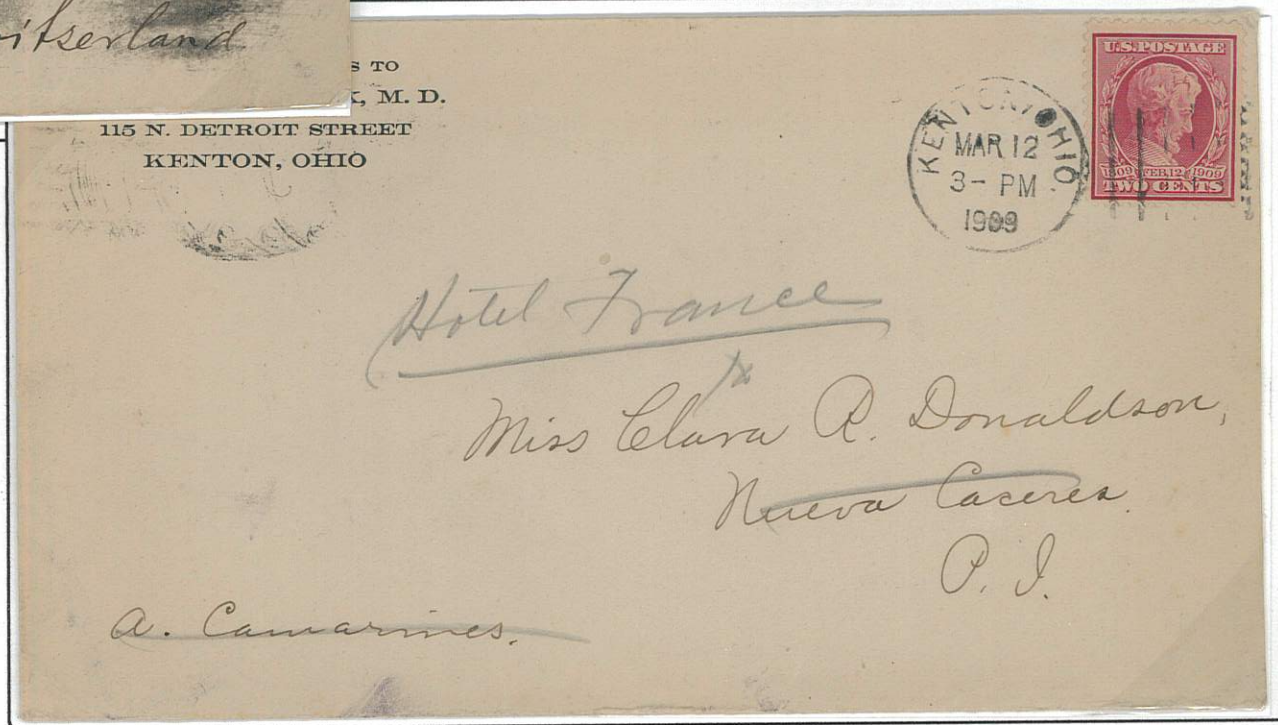 itserland
S TO
K, M. D.
115 N. DETROIT STREET
KENTON, OHIO
KENTON, OHIO
MAR 12
3- PM
1909
U.S. POSTAGE
1809 FEB. 12 1909
TWO CENTS
Hotel France
Miss Clara R. Donaldson,
Nueva Caceres
P. I.
A. Camarines.